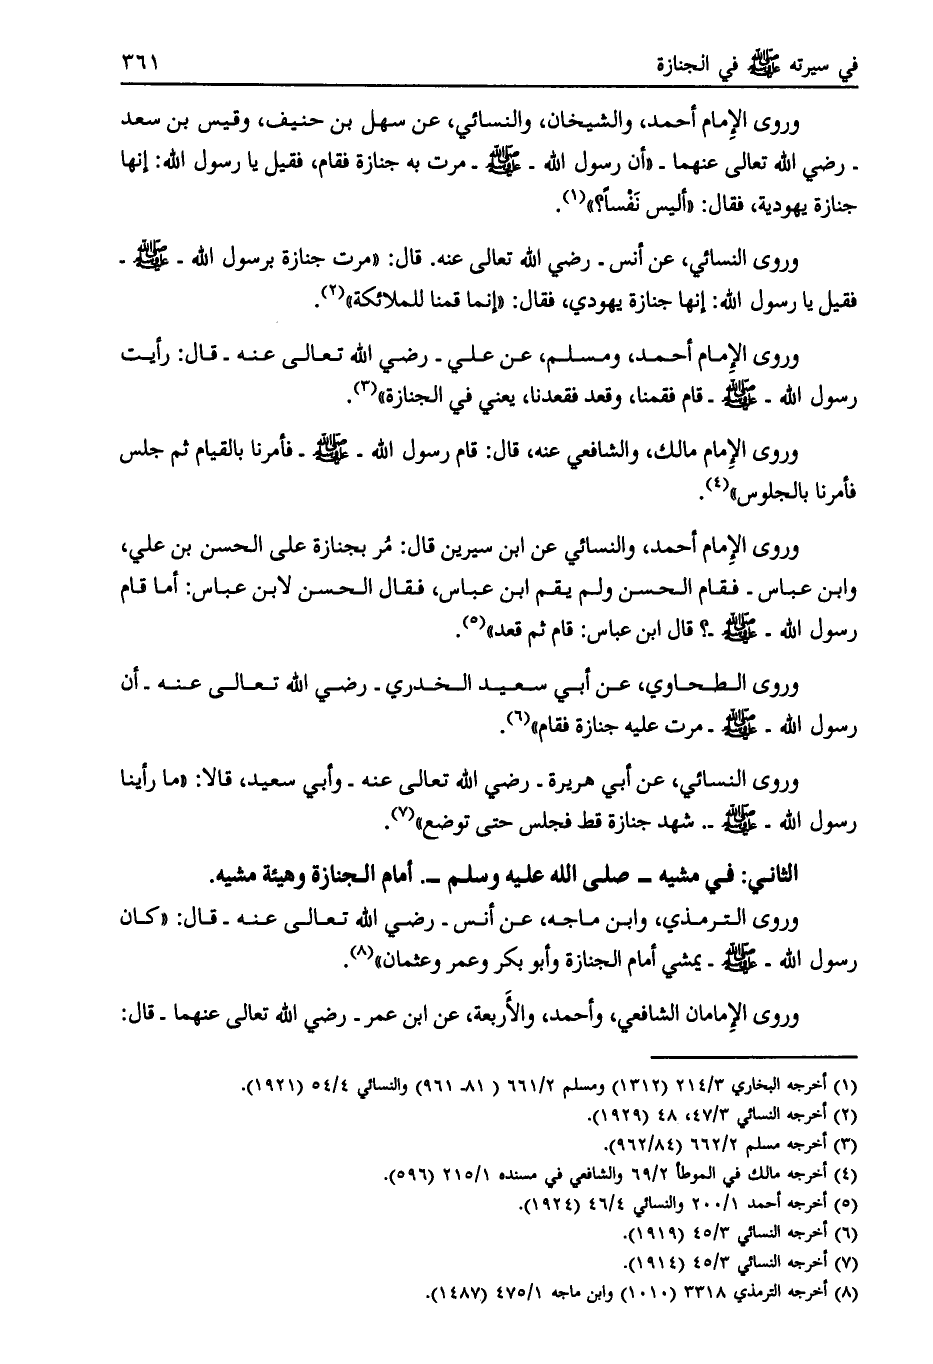 في سيرته ﷺ في الجنازة ٣٦١
وروى الإِمام أحمد، والشيخان، والنسائي، عن سهل بن حنيف، وقيس بن سعد
ـ رضي الله تعالى عنهما ـ «أن رسول الله ـ ﷺ ـ مرت به جنازة فقام، فقيل يا رسول الله: إنها
جنازة يهودية، فقال: «أليس نَفْساً؟»(١).
وروى النسائي، عن أنس ـ رضي الله تعالى عنه. قال: «مرت جنازة برسول الله ـ ﷺ ـ
فقيل يا رسول الله: إنها جنازة يهودي، فقال: «إنما قمنا للملائكة»(٢).
وروى الإِمام أحمد، ومسلم، عن علي ـ رضي الله تعالى عنه ـ قال: رأيت
رسول الله ـ ﷺ ـ قام فقمنا، وقعد فقعدنا، يعني في الجنازة»(٣).
وروى الإِمام مالك، والشافعي عنه، قال: قام رسول الله ـ ﷺ ـ فأمرنا بالقيام ثم جلس
فأمرنا بالجلوس»(٤).
وروى الإِمام أحمد، والنسائي عن ابن سيرين قال: مُر بجنازة على الحسن بن علي،
وابن عباس ـ فقام الحسن ولم يقم ابن عباس، فقال الحسن لابن عباس: أما قام
رسول الله ـ ﷺ ـ؟ قال ابن عباس: قام ثم قعد»(٥).
وروى الطحاوي، عن أبي سعيد الخدري ـ رضي الله تعالى عنه ـ أن
رسول الله ـ ﷺ ـ مرت عليه جنازة فقام»(٦).
وروى النسائي، عن أبي هريرة ـ رضي الله تعالى عنه ـ وأبي سعيد، قالا: «ما رأينا
رسول الله ـ ﷺ ـ. شهد جنازة قط فجلس حتى توضع»(٧).
الثاني: في مشيه ـ صلى الله عليه وسلم ـ. أمام الجنازة وهيئة مشيه.
وروى الترمذي، وابن ماجه، عن أنس ـ رضي الله تعالى عنه ـ قال: «كان
رسول الله ـ ﷺ ـ يمشي أمام الجنازة وأبو بكر وعمر وعثمان»(٨).
وروى الإِمامان الشافعي، وأحمد، والأَربعة، عن ابن عمر ـ رضي الله تعالى عنهما ـ قال:
(١) أخرجه البخاري ٢١٤/٣ (١٣١٢) ومسلم ٦٦١/٢ ( ٨١ـ ٩٦١) والنسائي ٥٤/٤ (١٩٢١).
(٢) أخرجه النسائي ٤٧/٣، ٤٨ (١٩٢٩).
(٣) أخرجه مسلم ٦٦٢/٢ (٩٦٢/٨٤).
(٤) أخرجه مالك في الموطأ ٦٩/٢ والشافعي في مسنده ٢١٥/١ (٥٩٦).
(٥) أخرجه أحمد ٢٠٠/١ والنسائي ٤٦/٤ (١٩٢٤).
(٦) أخرجه النسائي ٤٥/٣ (١٩١٩).
(٧) أخرجه النسائي ٤٥/٣ (١٩١٤).
(٨) أخرجه الترمذي ٣٣١٨ (١٠١٠) وابن ماجه ٤٧٥/١ (١٤٨٧).